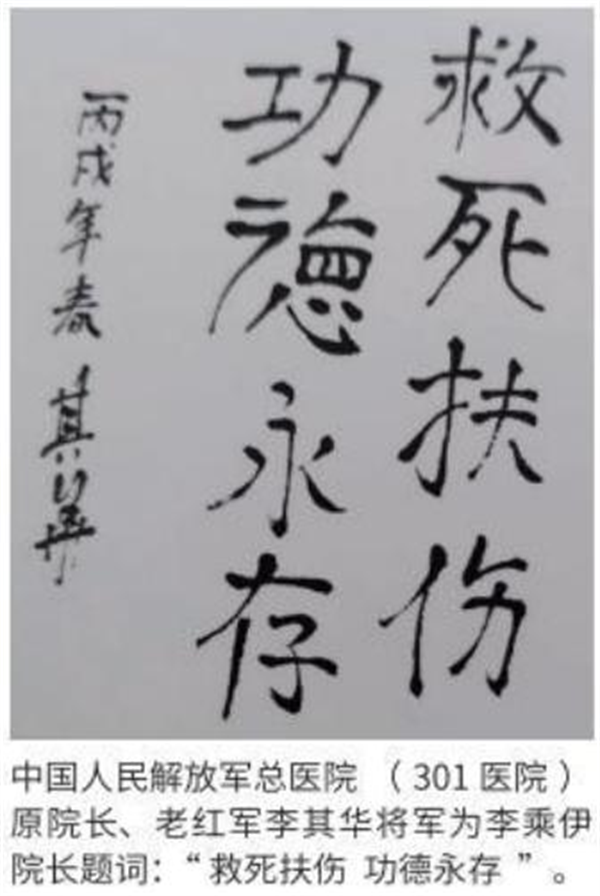 救死扶伤
功德永存
丙戌年春
其华
中国人民解放军总医院 （301医院）
原院长、老红军李其华将军为李乘伊
院长题词：“救死扶伤 功德永存 ”。